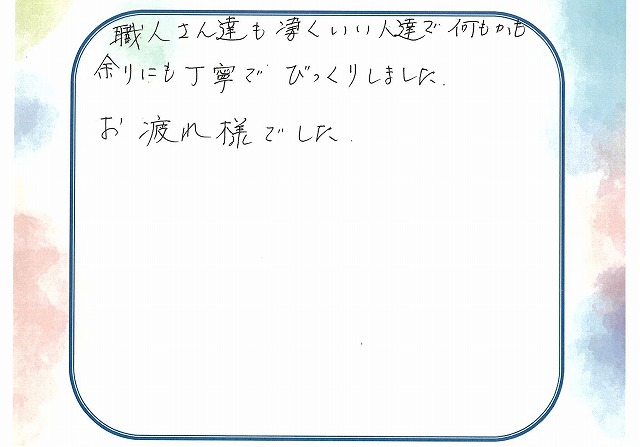 職人さん達も凄くいい人達で何もかも
余りにも丁寧で びっくりしました.
お疲れ様でした.